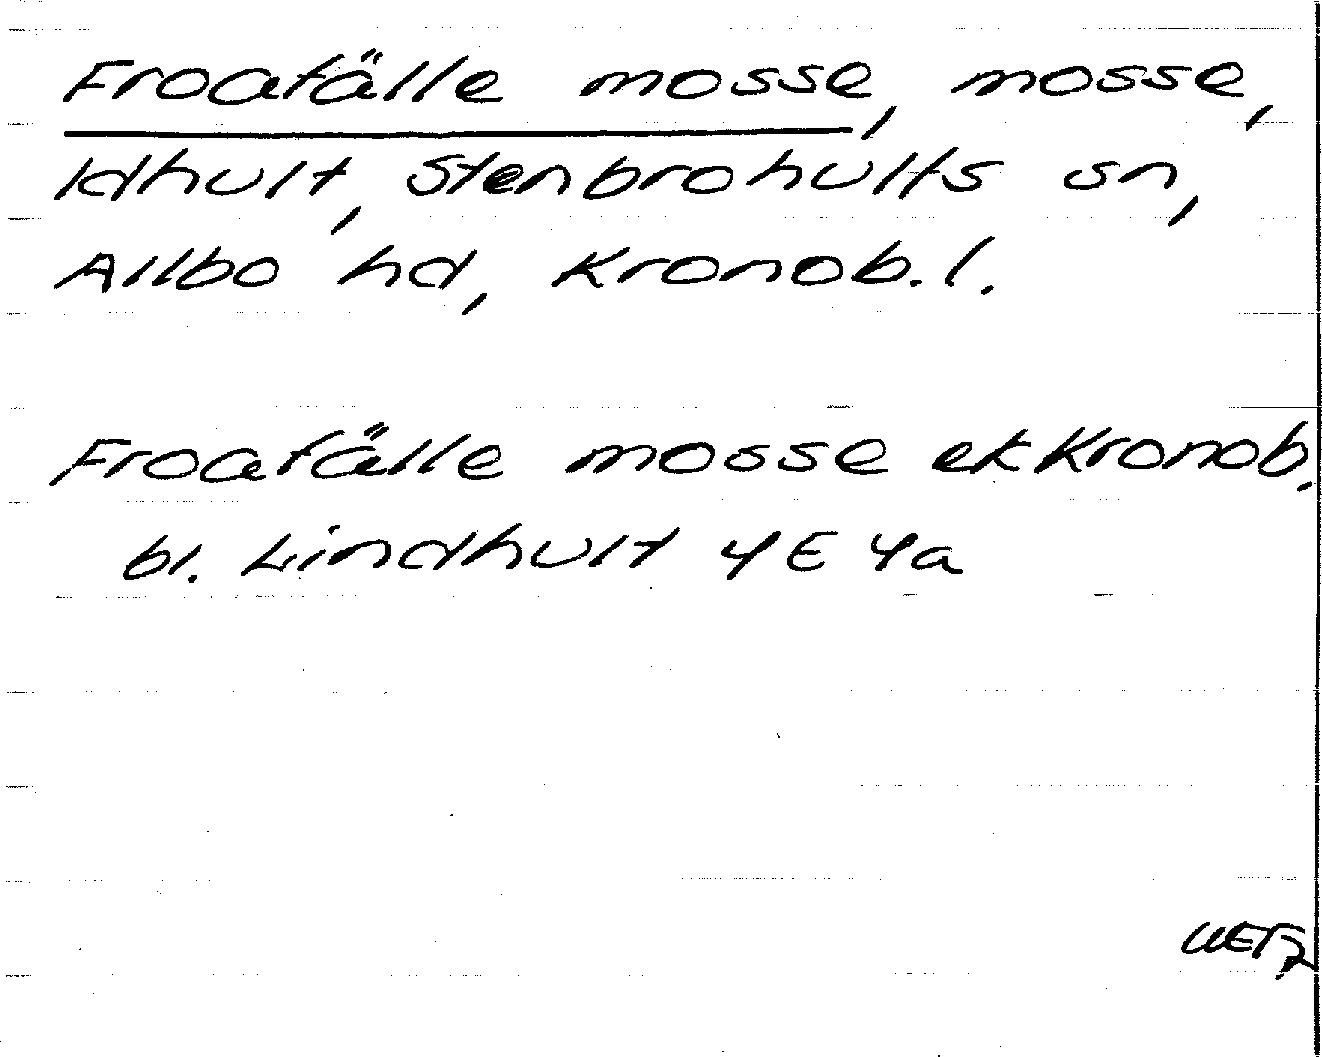 Froafälle mosse, mosse,
Idhult, Stenbrohults sn,
Allbo hd, Kronob. l.
Froafälle mosse ek Kronob.
bl. Lindhult 4E 4a